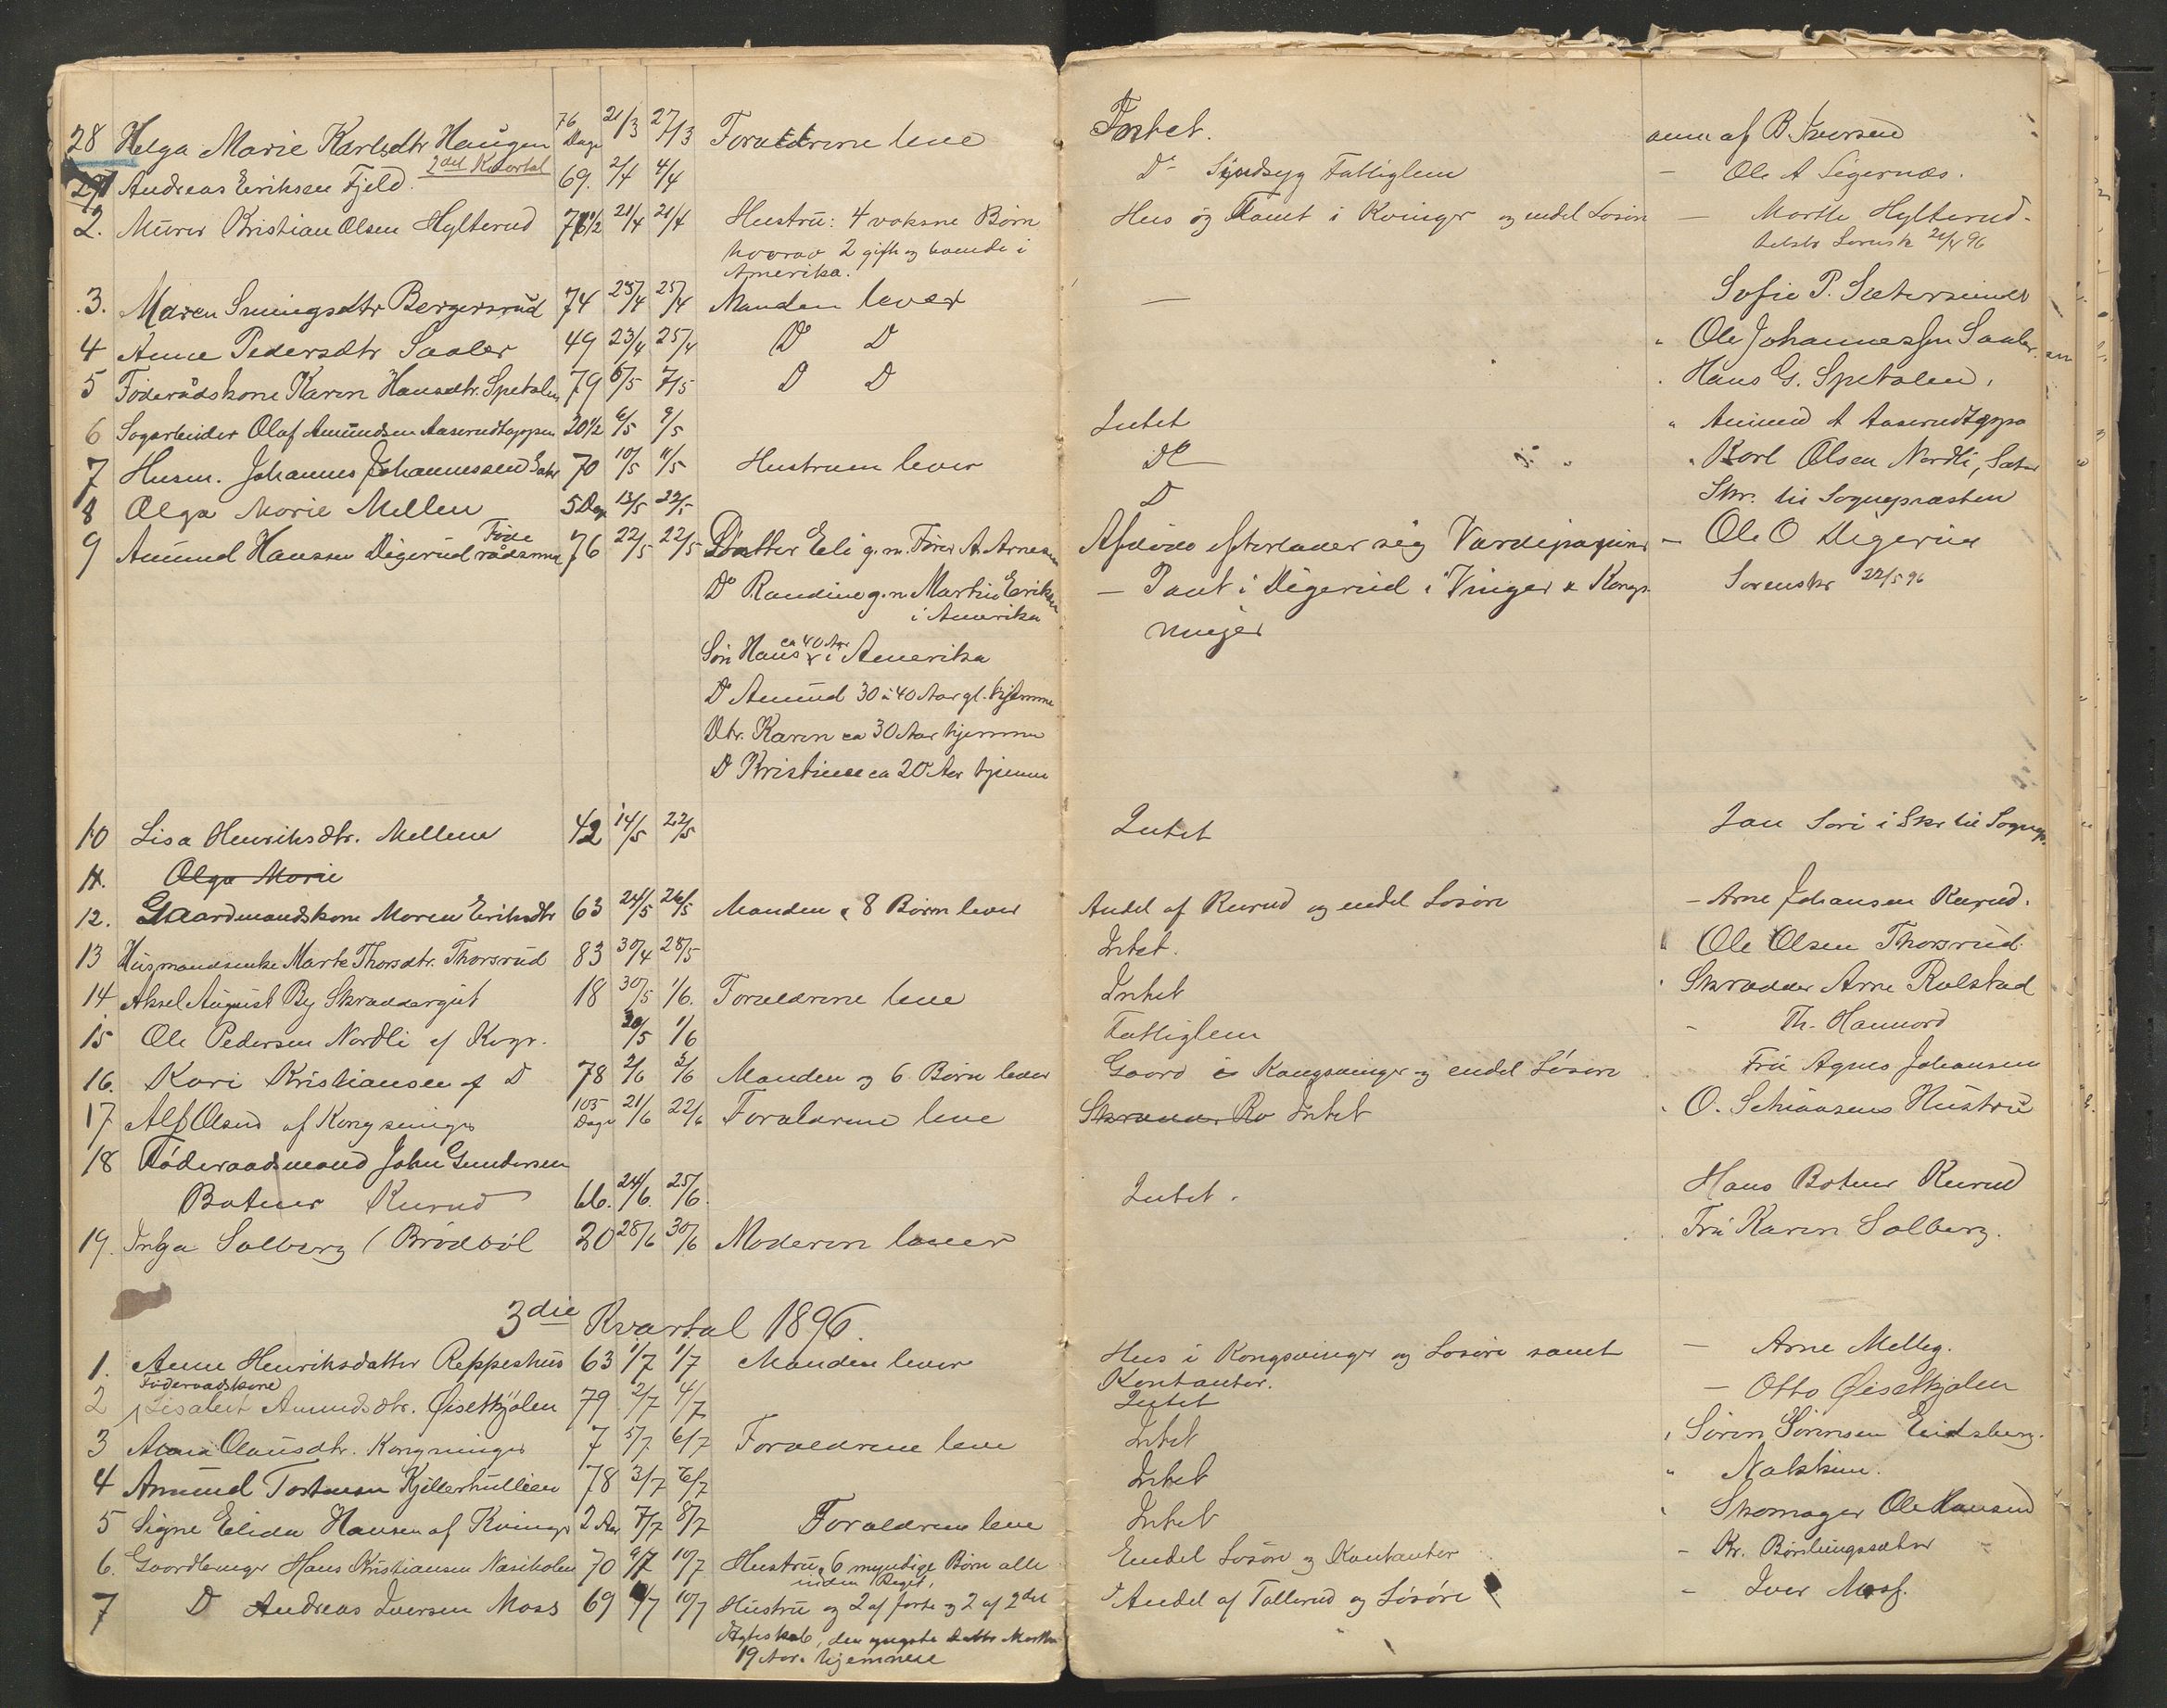 28 Helga Marie Karlsdtr Haugen 76 Dage 21/3 27/3 Forældrene leve Intet. anm af B. Iversen
2det Kvartal
Andreas Eriksen Fjeld. 69. 2/4 4/4 Do Sindsyg Fattiglem — Ole A Sigernæs.
2. Murer Kristian Olsen Hylterud 1/2 21/4 21/4 Hustru: 4 voksne Børn Hus og Tomt i Kvinger og endel Løsøre — Marthe Hylterud
hvorav 2 gifte og boende i Sorensk 21/4 96
Amerika.
3. Maren Simingsdtr Bergersrud 74 23/4 25/4 Manden lever — Sofie P.
4 Anne Pedersdtr Saaler 49 23/4 25/4 D D " Ole Johannessen Saaler
5 Føderådskone Karen Hansdtr. Spetalen 79 6/5 7/5 D D Hans G. Spetalen.
6 Sagarbeider Olaf Amundsen Aaserudtoppen 20 1/2 6/5 9/5 Intet " Amund A Aaserudtoppe
7 Husm. Johannes Johannessen Sæter 70 10/5 11/5 Hustruen lever Do Karl Olsen Nordli, Sæter
8 Olga Marie Mellem 5 Dage 13/5 22/5 D Skr. til Sognepræsten
9 Amund Hanssen Digerud Føderådsmand 76 22/5 22/5 Datter Eli g. m. Fører A. Arnesen Afdøde efterlader sig Værdipapirer — Ole O Digerud
Do Randine g. m. Martin Eriksen — Pant i Digerud i Vinger & Kongs- Sorenskr 22/5 96
i Amerika vinger
Søn Hans ca 40 Aar i Amerika
Do Amund 30 à 40 Aar gl. hjemme
Dtr. Karen ca 30 Aar hjemme
D Kristine ca 20 Aar hjemme
10 Lisa Henriksdtr. Mellem 42 14/5 22/5 Intet i Skr til Sognep.
11. Olga Marie
12. Gaardmandskone Maren Eriksdtr 63 24/5 26/5 Manden & 8 Børn lever Andel af Rurud og endel Løsøre — Arne Johansen Rurud.
13 Husmandsenke Marte Thorsdtr. Thorsrud 83 30/4 28/5 Intet. " Ole Olsen Thorsrud
14. Aksel August By Skræddergut 18 30/5 1/6. Forældrene leve Intet Skrædder Arne Rolstad
15 Ole Pedersen Nordli af Kvgr. 30/5 1/6 Fattiglem — Th. Hannord
16. Kari Kristiansen af D 78 2/6 3/6 Manden og 6 Børn lever Gaard i Kongsvinger og endel Løsøre Fru Agnes Johansen
17 Alf Olsen af Kongsvinger 105 Dage 21/6 22/6 Forældrene leve Skrædder Ro Intet O. Hustru
18 Føderaadsmand John Gundersen
Botner Rurud 66. 24/6. 25/6. Intet. Hans Botner Rurud
19. Inga Solberg (Brødbøl 20 28/6 30/6 Moderen lever Fru Karen Solberg.
3die Kvartal 1896.
1. Anne Henriksdatter Reppeshus 63 1/7 1/7 Manden lever Hus i Kongsvinger og Løsøre samt — Arne Melleg.
Føderaadskone Kontanter.
2 Lisabet Amundsdtr. Øiselkjølen 79 2/7 4/7 Intet — Otto Øiselkjølen
3 Anna Olausdtr. Kongsvinger 7 5/7 6/7 Forældrene leve Intet Søren Sørensen Eidsberg.
4 Amund Kjellerhullien 78 3/7 6/7 Intet "
5 Signe Elida Hansen af Kvinger 2 Aar 7/7 8/7 Forældrene leve Intet Skomager Ole Hansen
6. Gaardbruger Hans Kristiansen 70 9/7 10/7 Hustru, 6 myndige Børn alle Endel Løsøre og Kontanter — Kr.
inden Riget,
7 D Andreas Iversen Moss 69 10/7 Hustru og 2 af første og 2 af 2det Andel af Tallerud og Løsøre — Iver Moss.
Ægteskab, den yngste Datter Marthe
19 Aar. hjemme